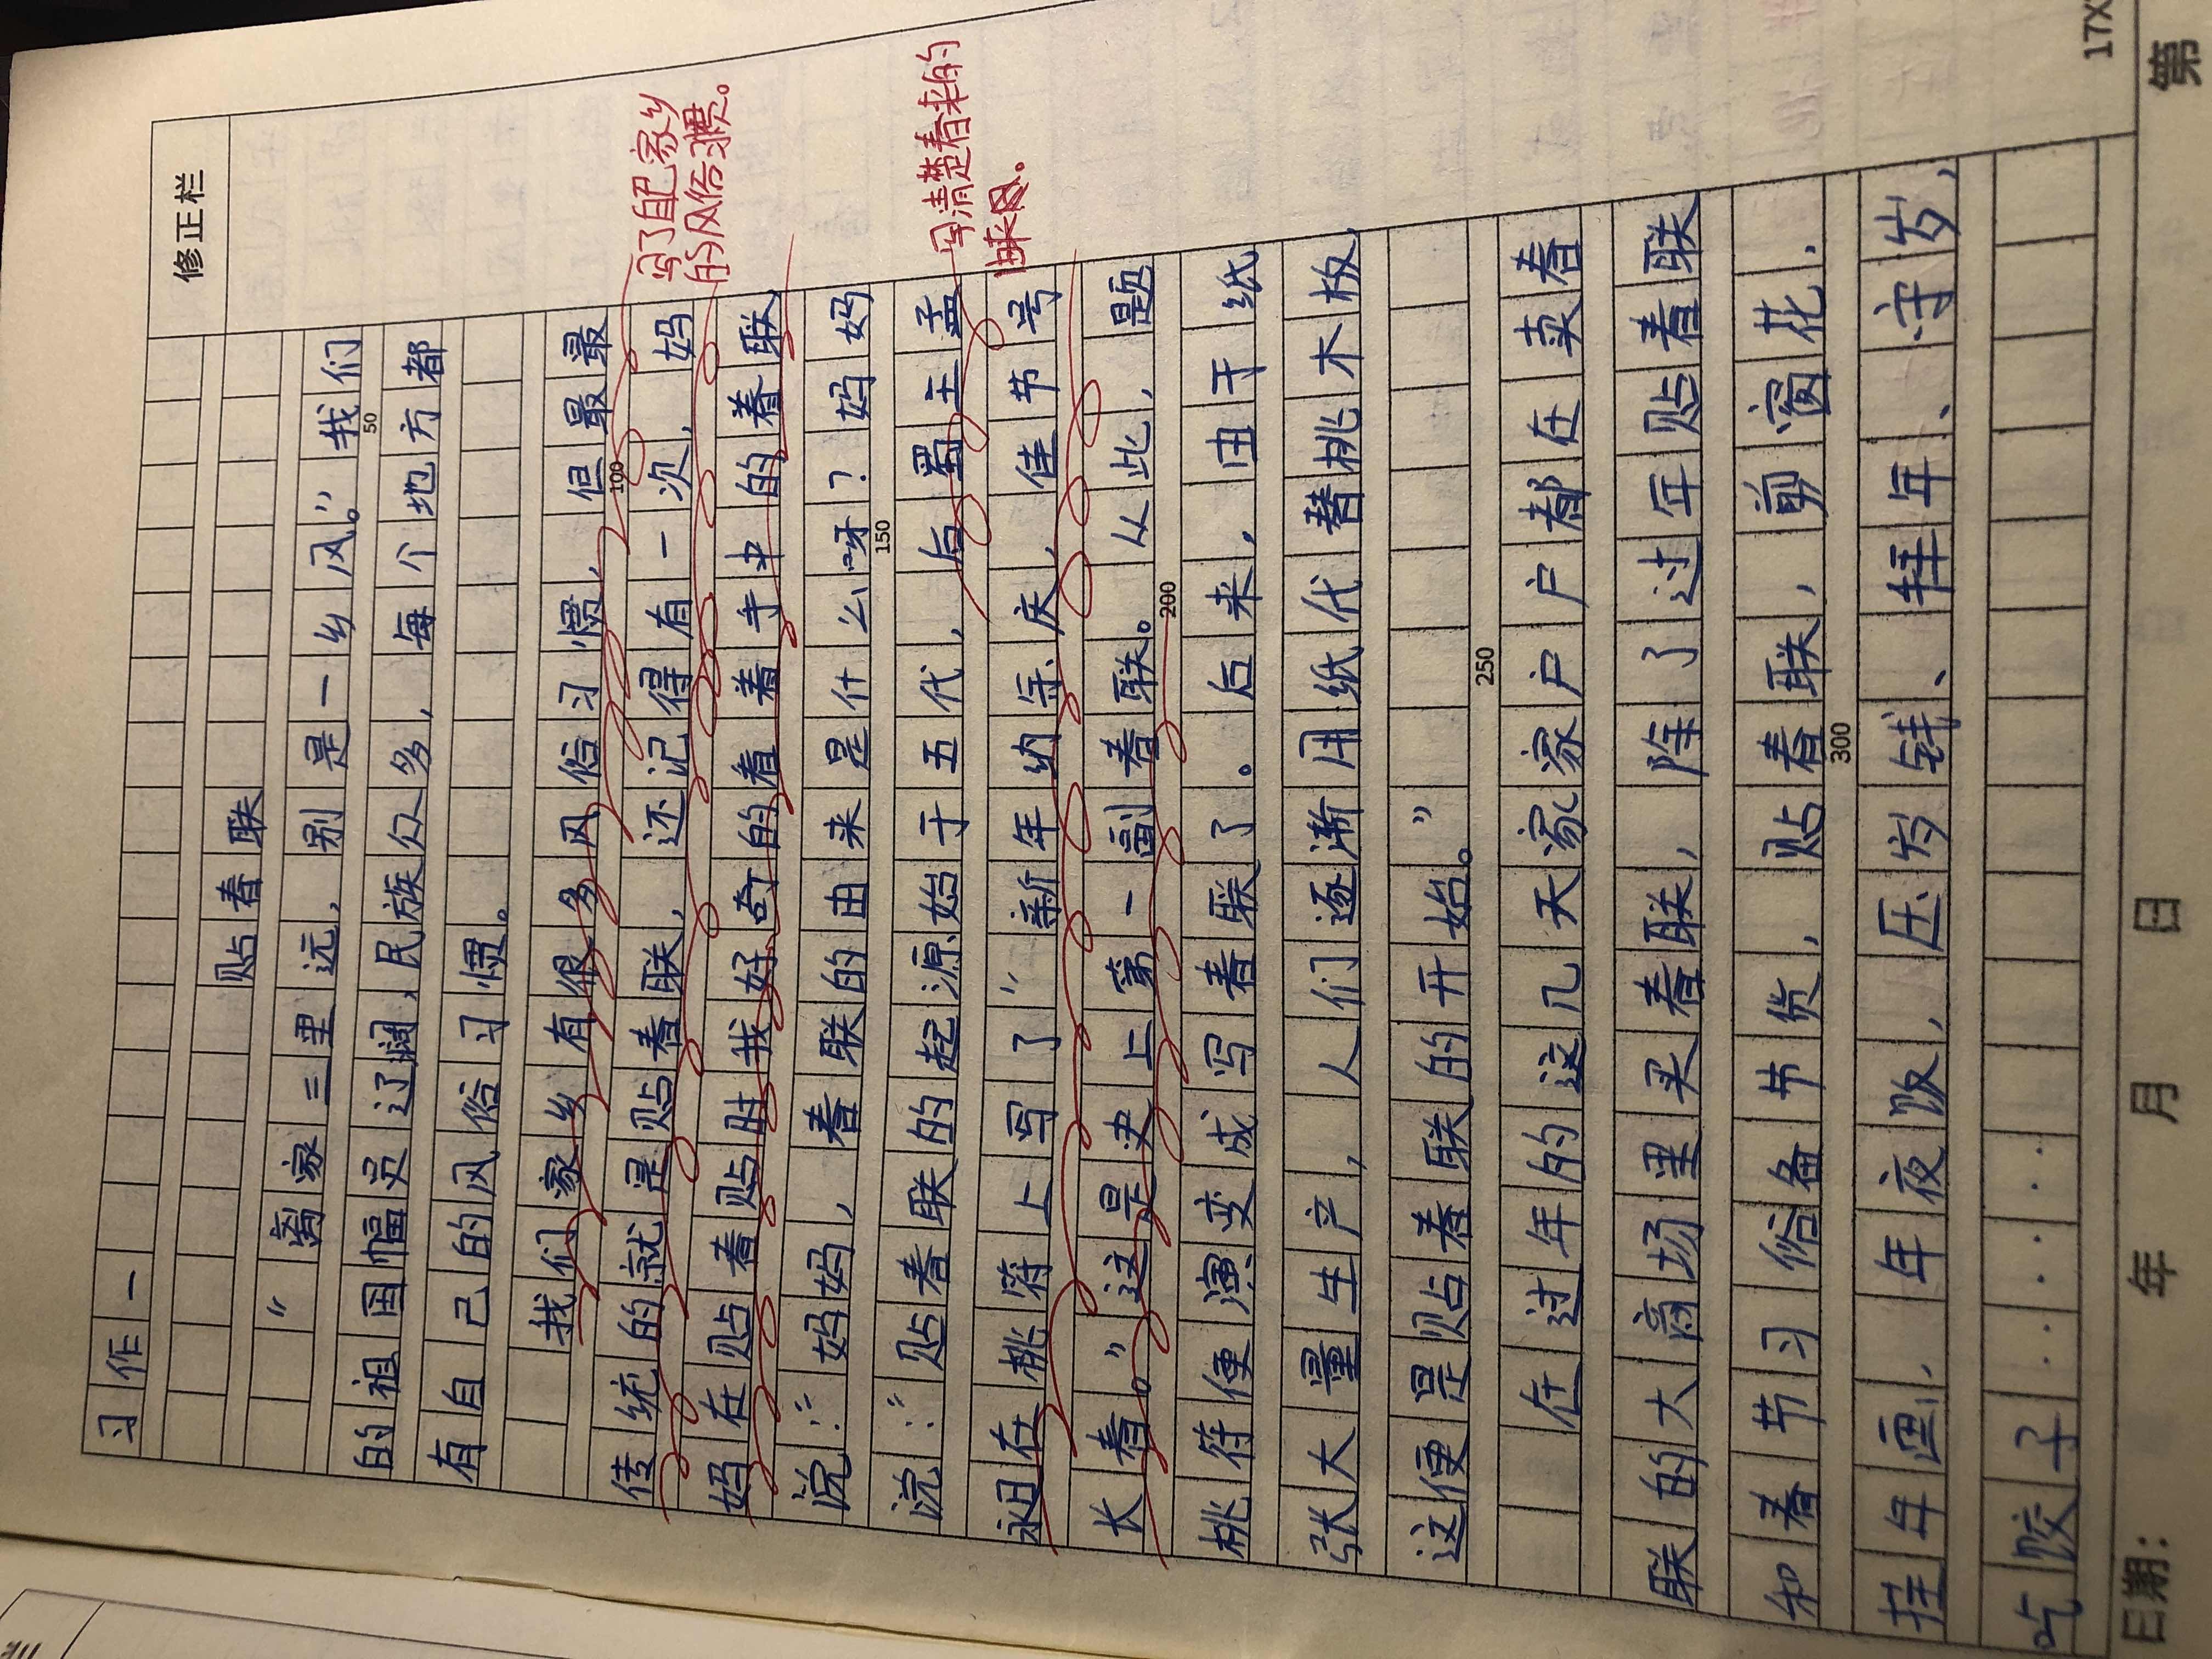 修正栏
习作一
贴春联
“离家三里远，别是一乡风。”我们
50
的祖国幅员辽阔，民族众多，每个地方都
有自己的风俗习惯。
我们家乡有很多风俗习惯，但最最
100
传统的就是贴春联，还记得有一次，妈
妈在贴春贴时我好奇的看着手中的春联
说：“妈妈，春联的由来是什么呀？妈妈
150
说：“贴春联的起源始于五代，后蜀主孟
永日在桃符上写了“新年纳余庆，佳节号
长春。”这是史上第一副春联。从此，题
200
桃符便演变成写春联了。后来，由于纸
张大量生产，人们逐渐用纸代替桃木板，
这便是贴春联的开始。”
250
在过年的这几天家家户户都在卖春
联的大商场里买春联，除了过年贴春联
和春节习俗备节货，贴春联，剪窗花，
300
挂年画，年夜饭，压岁钱、拜年、守岁，
吃饺子······
写了自己家乡
的风俗习惯。
写清楚春来的
由来。
日期： 年 月 日
第
17X